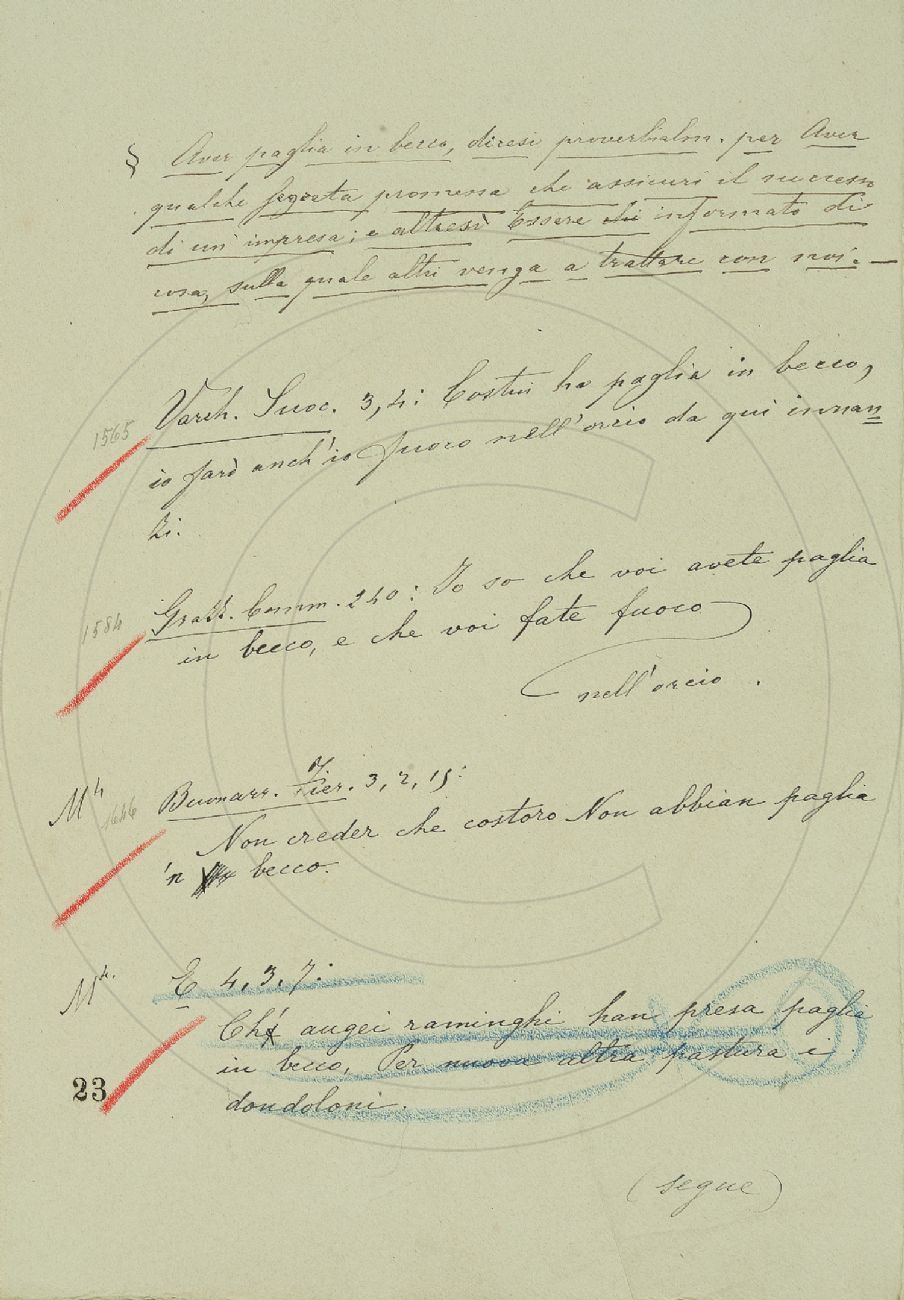 § Aver paglia in becco, dicesi proverbialm. per Aver
qualche segreta promessa che assicuri il successo
di un' impresa; e altresì Essere informato di
cosa, sulla quale altri venga a trattare con noi. —
1565 Varch. Suoc. 3, 4: Costui ha paglia in becco,
io farò anch'io fuoco nell'orcio da qui innan
zi.
1584 Grazz. Comm. 240: Io so che voi avete paglia
in becco, e che voi fate fuoco
nell'orcio.
M⁴ Buonarr. Fier. 3, 2, 15:
1646 Non creder che costoro Non abbian paglia
'n becco.
M⁴. E 4, 3, 7:
Ch' augei raminghi han presa paglia
in becco, Per nuova altra pastura i
23 dondoloni.
(segue)